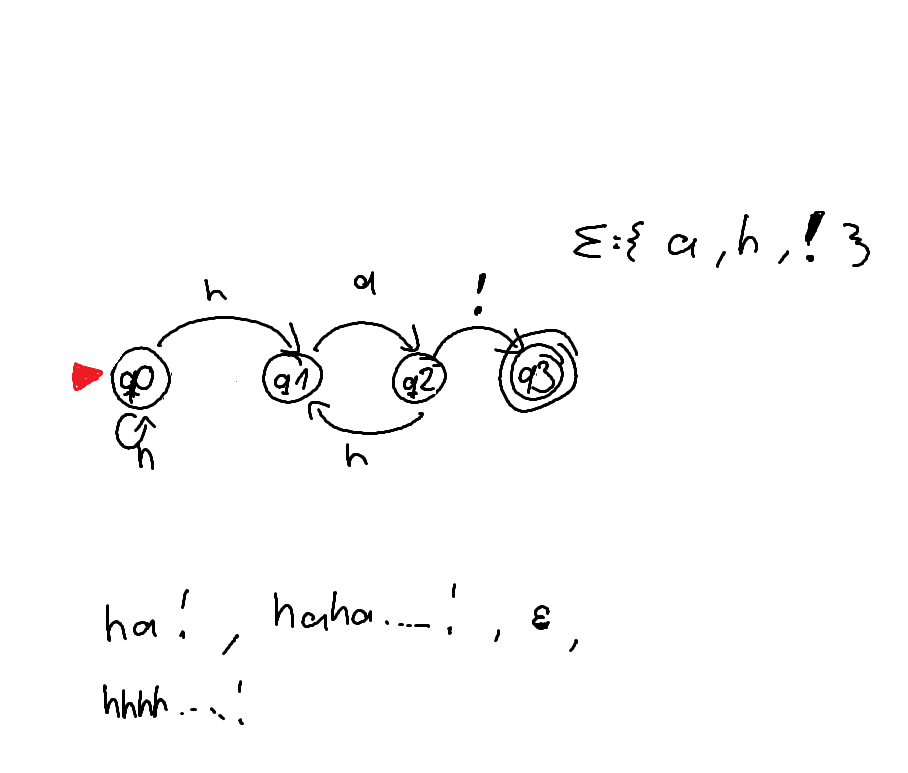 Σ:{ a , h , ! }
h a !
q0 q1 q2 q3
h h
ha! , haha..... ! , ε ,
hhhh ..... !